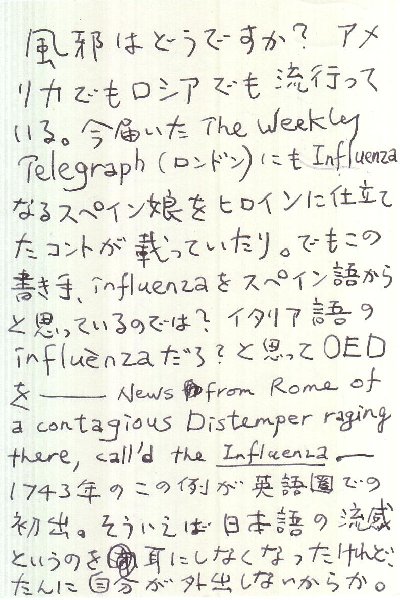 風邪はどうですか? アメ
リカでもロシアでも流行って
いる。今届いた The Weekley
Telegraph (ロンドン)にも Influenza
なるスペイン娘をヒロインに仕立て
たコントが載っていたり。でもこの
書き手、influenzaをスペイン語から
と思っているのでは? イタリア語の
influènzaだろ?と思ってOED
を—— News from Rome of
a contagious Distemper raging
there, call'd the Influenza.—
1743年のこの例が英語圏での
初出。そういえば日本語の流感
というのを耳にしなくなったけれど、
たんに自分が外出しないからか。